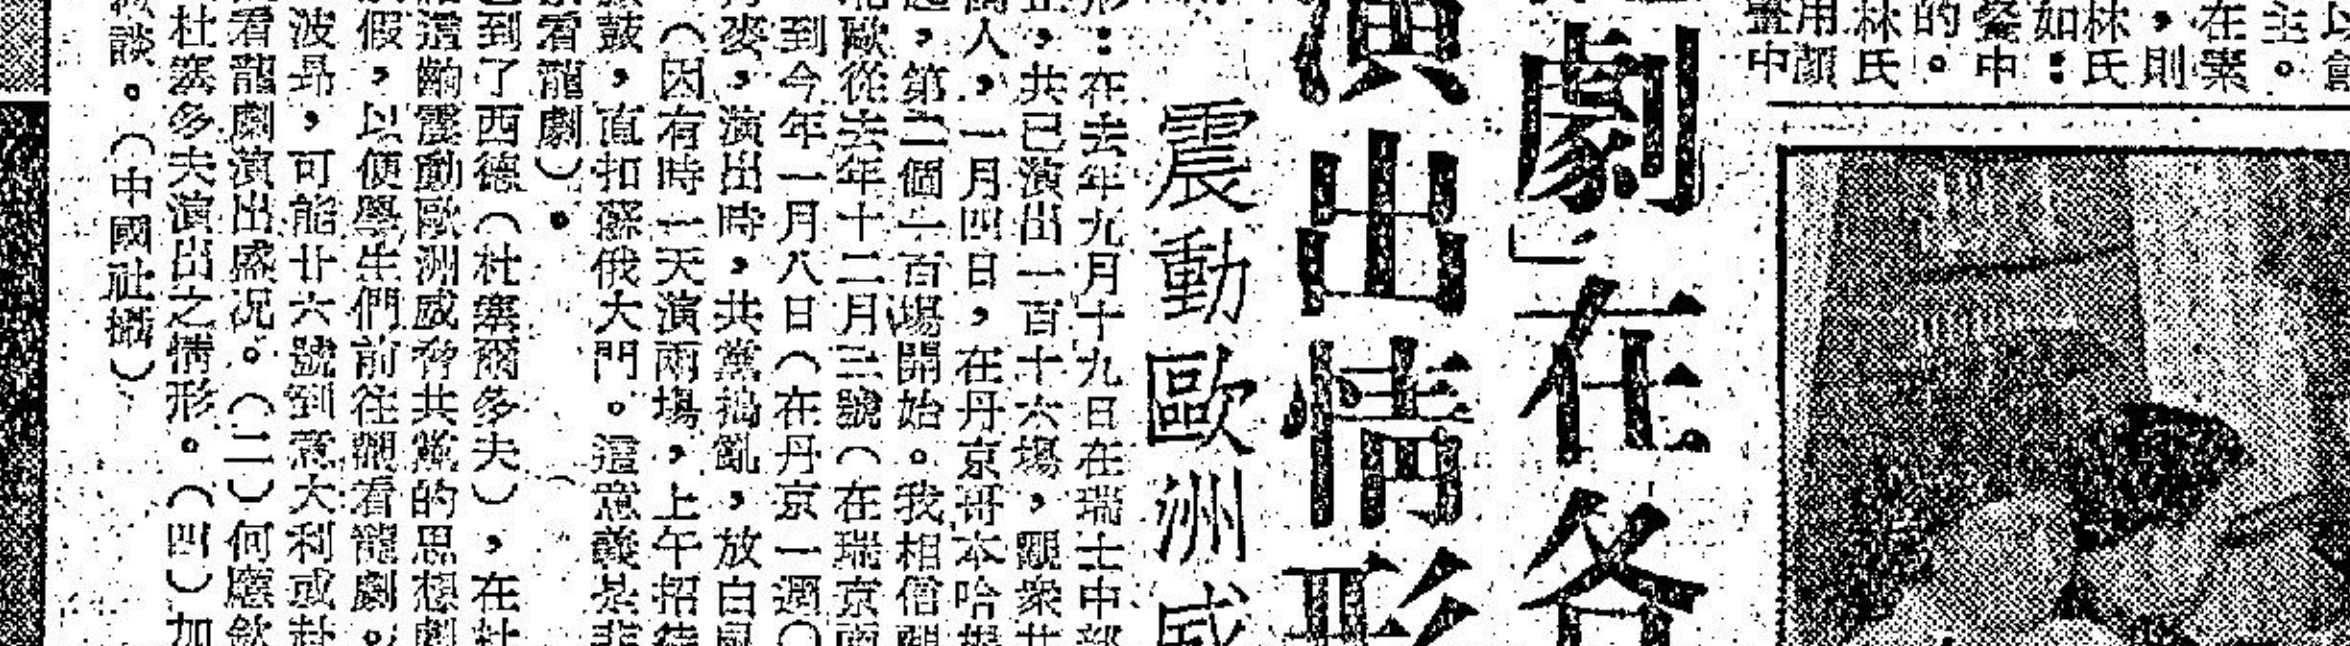 以創
主。
在
則素
林氏
如：
餐中
的。
林氏
用顏
盡中
劇」在各
演出情形
震動歐洲威
形：在去年九月十九日在瑞士中部
止，共已演出一百十六場，觀衆共
萬人，一月四日，在丹京哥本哈根
起，第二個一百場開始。我相信
北歐從去年十二月三號（在瑞京
到今年一月八日（在丹京一週
丹麥，演出時，共黨搗亂，放白鼠
（因有時一天演兩場，上午招待
鼓，直扣蘇俄大門。這意義是非
看龍劇）。
已到了西德（杜塞爾多夫），在杜
這齣震動歐洲威脅共黨的思想劇
假，以便學生們前往觀看龍劇。
波昻，可能廿六號到意大利或
看龍劇演出盛况。（二）何應欽
杜塞多夫演出之情形。（四）加
談。（中國社攝）